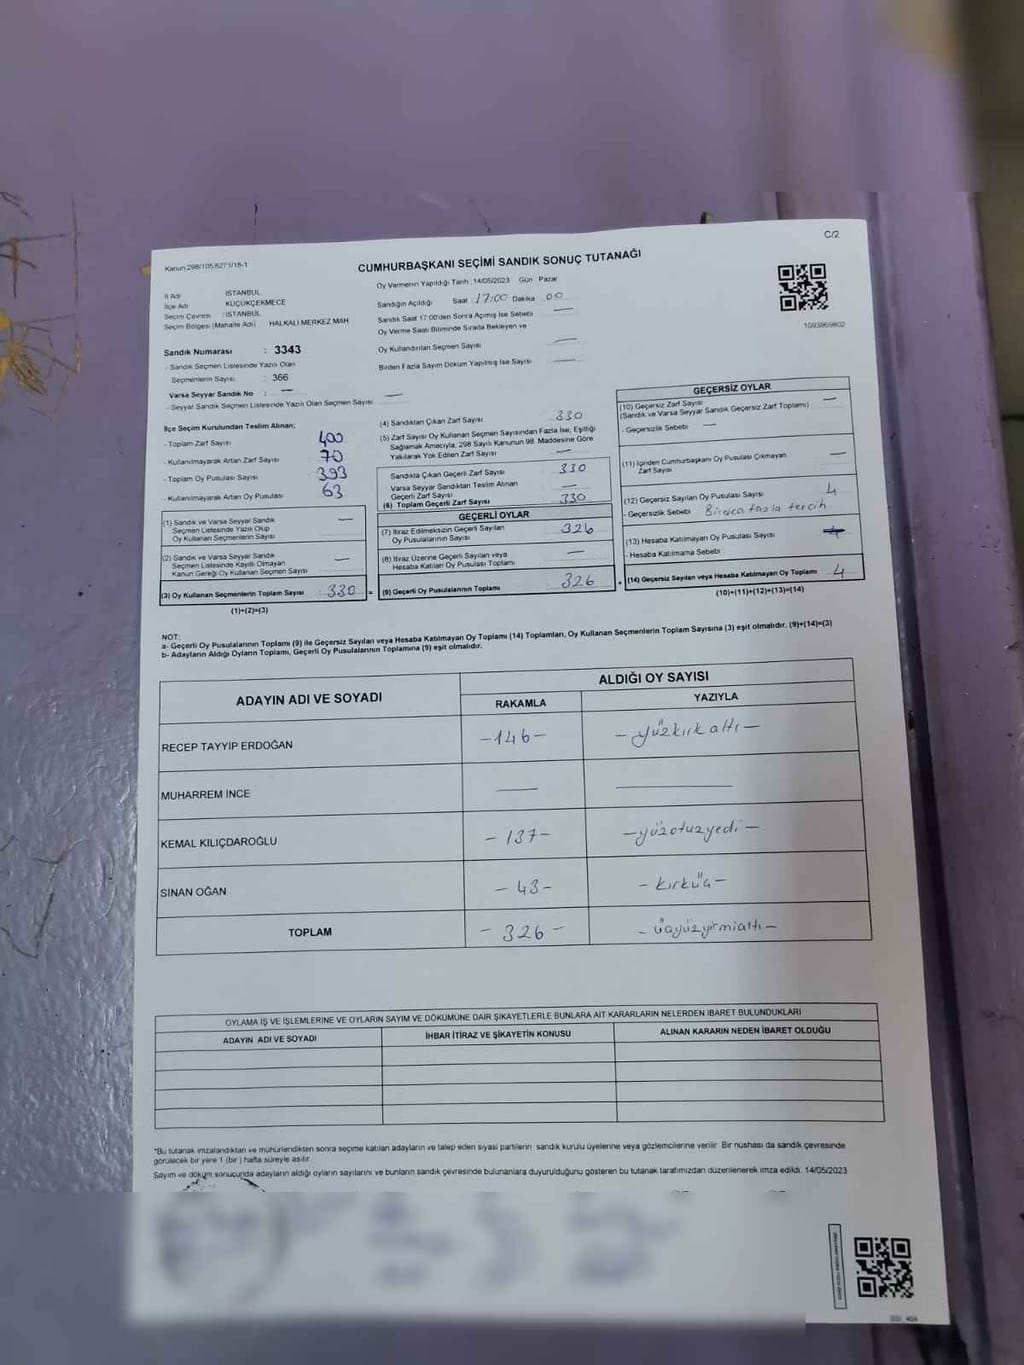 C/2
Kanun:298/105 8271/18-1
CUMHURBAŞKANI SEÇİMİ SANDIK SONUÇ TUTANAĞI
Oy Vermenin Yapıldığı Tarih : 14/05/2023 Gün Pazar
İl Adı İSTANBUL
İlçe Adı KÜÇÜKÇEKMECE
Seçim Çevresi : İSTANBUL
Seçim Bölgesi (Mahalle Adı) HALKALI MERKEZ MAH
Sandığın Açıldığı Saat 17:00 Dakika 00
Sandık Saat 17.00'den Sonra Açımış İse Sebebi —
Oy Verme Saati Bitiminde Sırada Bekleyen ve
Oy Kullandırılan Seçmen Sayısı —
Birden Fazla Sayım Döküm Yapılmış İse Sayısı —
1093869802
Sandık Numarası : 3343
- Sandık Seçmen Listesinde Yazılı Olan
Seçmenlerin Sayısı : 366
Varsa Seyyar Sandık No : —
- Seyyar Sandık Seçmen Listesinde Yazılı Olan Seçmen Sayısı —
İlçe Seçim Kurulundan Teslim Alınan;
- Toplam Zarf Sayısı 400
- Kullanılmayarak Artan Zarf Sayısı 70
- Toplam Oy Pusulası Sayısı 393
- Kullanılmayarak Artan Oy Pusulası 63
(1) Sandık ve Varsa Seyyar Sandık
Seçmen Listesinde Yazılı Olup
Oy Kullanan Seçmenlerin Sayısı —
(2) Sandık ve Varsa Seyyar Sandık
Seçmen Listesinde Kayıtlı Olmayan
Kanun Gereği Oy Kullanan Seçmen Sayısı —
(3) Oy Kullanan Seçmenlerin Toplam Sayısı : 330 =
(1)+(2)=(3)
(4) Sandıktan Çıkan Zarf Sayısı 330
(5) Zarf Sayısı Oy Kullanan Seçmen Sayısından Fazla İse, Eşitliği
Sağlamak Amacıyla, 298 Sayılı Kanunun 98. Maddesine Göre
Yakılarak Yok Edilen Zarf Sayısı —
Sandıkta Çıkan Geçerli Zarf Sayısı 330
Varsa Seyyar Sandıktan Teslim Alınan
Geçerli Zarf Sayısı —
(6) Toplam Geçerli Zarf Sayısı 330
GEÇERLİ OYLAR
(7) İtiraz Edilmeksizin Geçerli Sayılan
Oy Pusulalarının Sayısı 326
(8) İtiraz Üzerine Geçerli Sayılan veya
Hesaba Katılan Oy Pusulası Toplamı —
(9) Geçerli Oy Pusulalarının Toplamı 326 +
GEÇERSİZ OYLAR
(10) Geçersiz Zarf Sayısı
(Sandık ve Varsa Seyyar Sandık Geçersiz Zarf Toplamı) —
- Geçersizlik Sebebi —
(11) İçinden Cumhurbaşkanı Oy Pusulası Çıkmayan
Zarf Sayısı —
(12) Geçersiz Sayılan Oy Pusulası Sayısı 4
- Geçersizlik Sebebi Birden fazla tercih
(13) Hesaba Katılmayan Oy Pusulası Sayısı
- Hesaba Katılmama Sebebi
(14) Geçersiz Sayılan veya Hesaba Katılmayan Oy Toplamı 4
(10)+(11)+(12)+(13)=(14)
NOT:
a- Geçerli Oy Pusulalarının Toplamı (9) ile Geçersiz Sayılan veya Hesaba Katılmayan Oy Toplamı (14) Toplamları, Oy Kullanan Seçmenlerin Toplam Sayısına (3) eşit olmalıdır. (9)+(14)=(3)
b- Adayların Aldığı Oyların Toplamı, Geçerli Oy Pusulalarının Toplamına (9) eşit olmalıdır.
ADAYIN ADI VE SOYADI ALDIĞI OY SAYISI
RAKAMLA YAZIYLA
RECEP TAYYIP ERDOĞAN -146- - yüzkırkaltı -
MUHARREM İNCE — —
KEMAL KILIÇDAROĞLU - 137- - yüzotuzyedi -
SİNAN OĞAN - 43- - kırküç -
TOPLAM - 326 - - üçyüzyirmialtı -
OYLAMA İŞ VE İŞLEMLERİNE VE OYLARIN SAYIM VE DÖKÜMÜNE DAİR ŞİKAYETLERLE BUNLARA AİT KARARLARIN NELERDEN İBARET BULUNDUKLARI
ADAYIN ADI VE SOYADI İHBAR İTİRAZ VE ŞİKAYETİN KONUSU ALINAN KARARIN NEDEN İBARET OLDUĞU
*Bu tutanak imzalandıktan ve mühürlendikten sonra seçime katılan adayların ve talep eden siyasi partilerin sandık kurulu üyelerine veya gözlemcilerine verilir. Bir nüshası da sandık çevresinde
görülecek bir yere 1 (bir) hafta süreyle asılır.
Sayım ve döküm sonucunda adayların aldığı oyların sayılarını ve bunların sandık çevresinde bulunanlara duyurulduğunu gösteren bu tutanak tarafımızdan düzenlenerek imza edildi. 14/05/2023